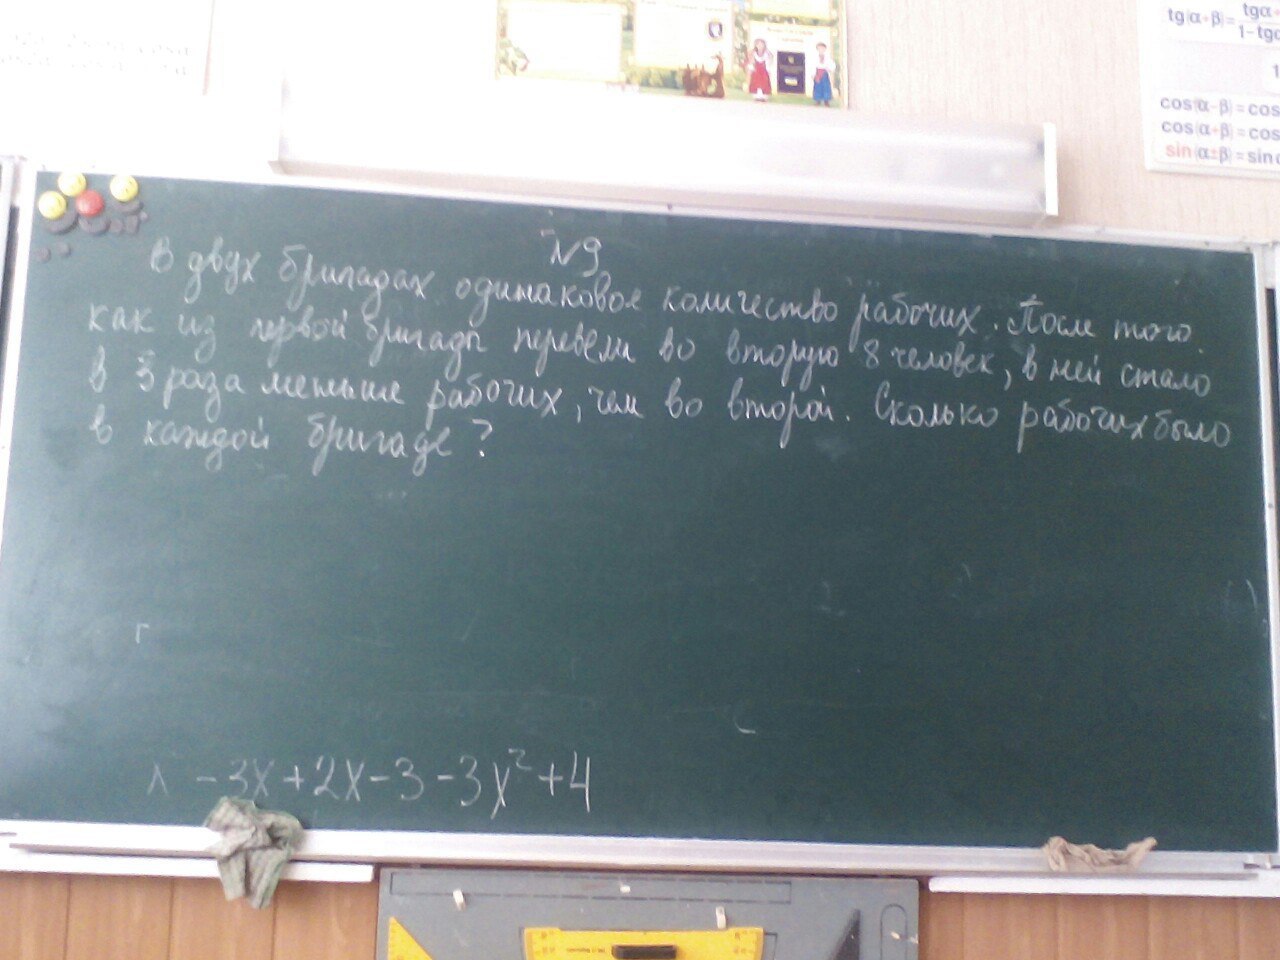 tg(α+β)=
tgα+
1-tgα
1
cos(α-β)=cos
cos(α+β)=cos
sin(α±β)=sinα
№9
В двух бригадах одинаковое количество рабочих. После того
как из первой бригады перевели во вторую 8 человек, в ней стало
в 3 раза меньше рабочих, чем во второй. Сколько рабочих было
в каждой бригаде?
- 3x + 2x - 3 - 3x² + 4